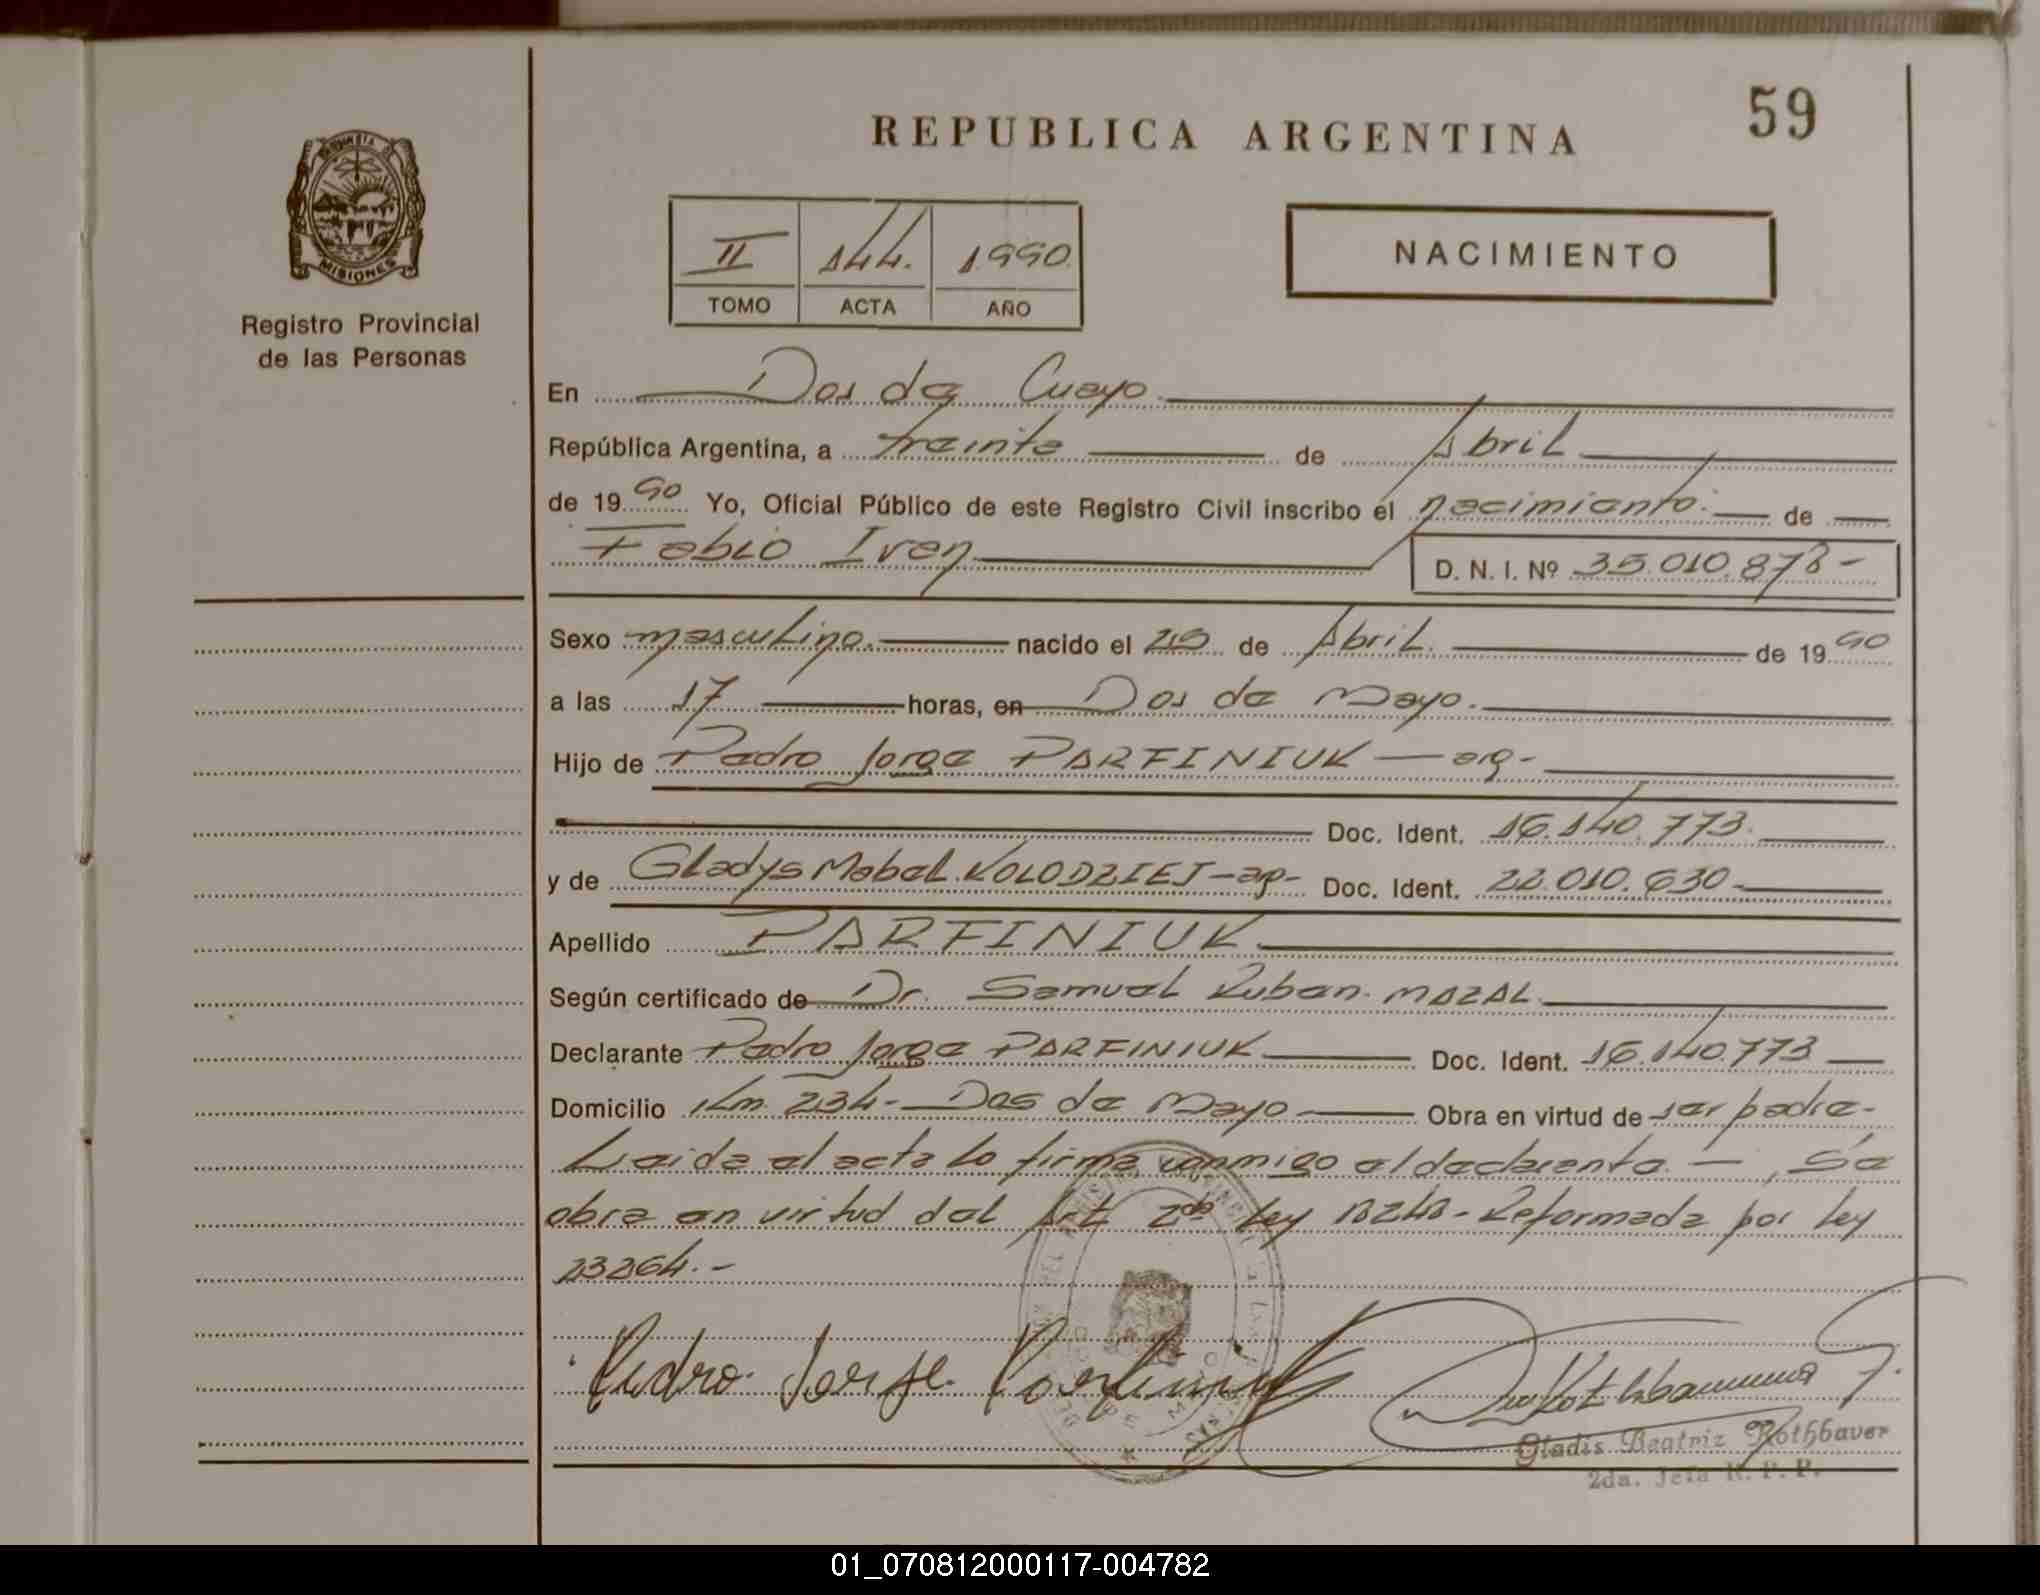 59
REPUBLICA ARGENTINA
PROVINCIA DE
MISIONES
Registro Provincial
de las Personas
II 144. 1990.
TOMO ACTA AÑO
NACIMIENTO
En Dos de Cuayo.
República Argentina, a treinta de Abril
de 1990 Yo, Oficial Público de este Registro Civil inscribo el nacimiento. de
Fabio Ivan
D. N. I. Nº 35.010.878-
Sexo masculino. nacido el 25 de Abril. de 1990
a las 17 horas, en Dos de Mayo.
Hijo de Pedro Jorge PARFINIUK — arg-
Doc. Ident. 16.140.773.
y de Gladys Mabel KOLODZIEJ - arg- Doc. Ident. 22.010.630-
Apellido PARFINIUK
Según certificado de Dr. Samuel Ruben MAZAL.
Declarante Pedro Jorge PARFINIUK Doc. Ident. 16.140.773
Domicilio Km 234- Dos de Mayo Obra en virtud de ser padre-
Leida el acta lo firma conmigo el declarente. — Se
obra en virtud del Art 2do Ley 18248- Reformada por Ley
23264.-
Pedro Jorge
Gladis Beatriz Rothbaver
2da. Jefa R. P. P.
01_070812000117-004782